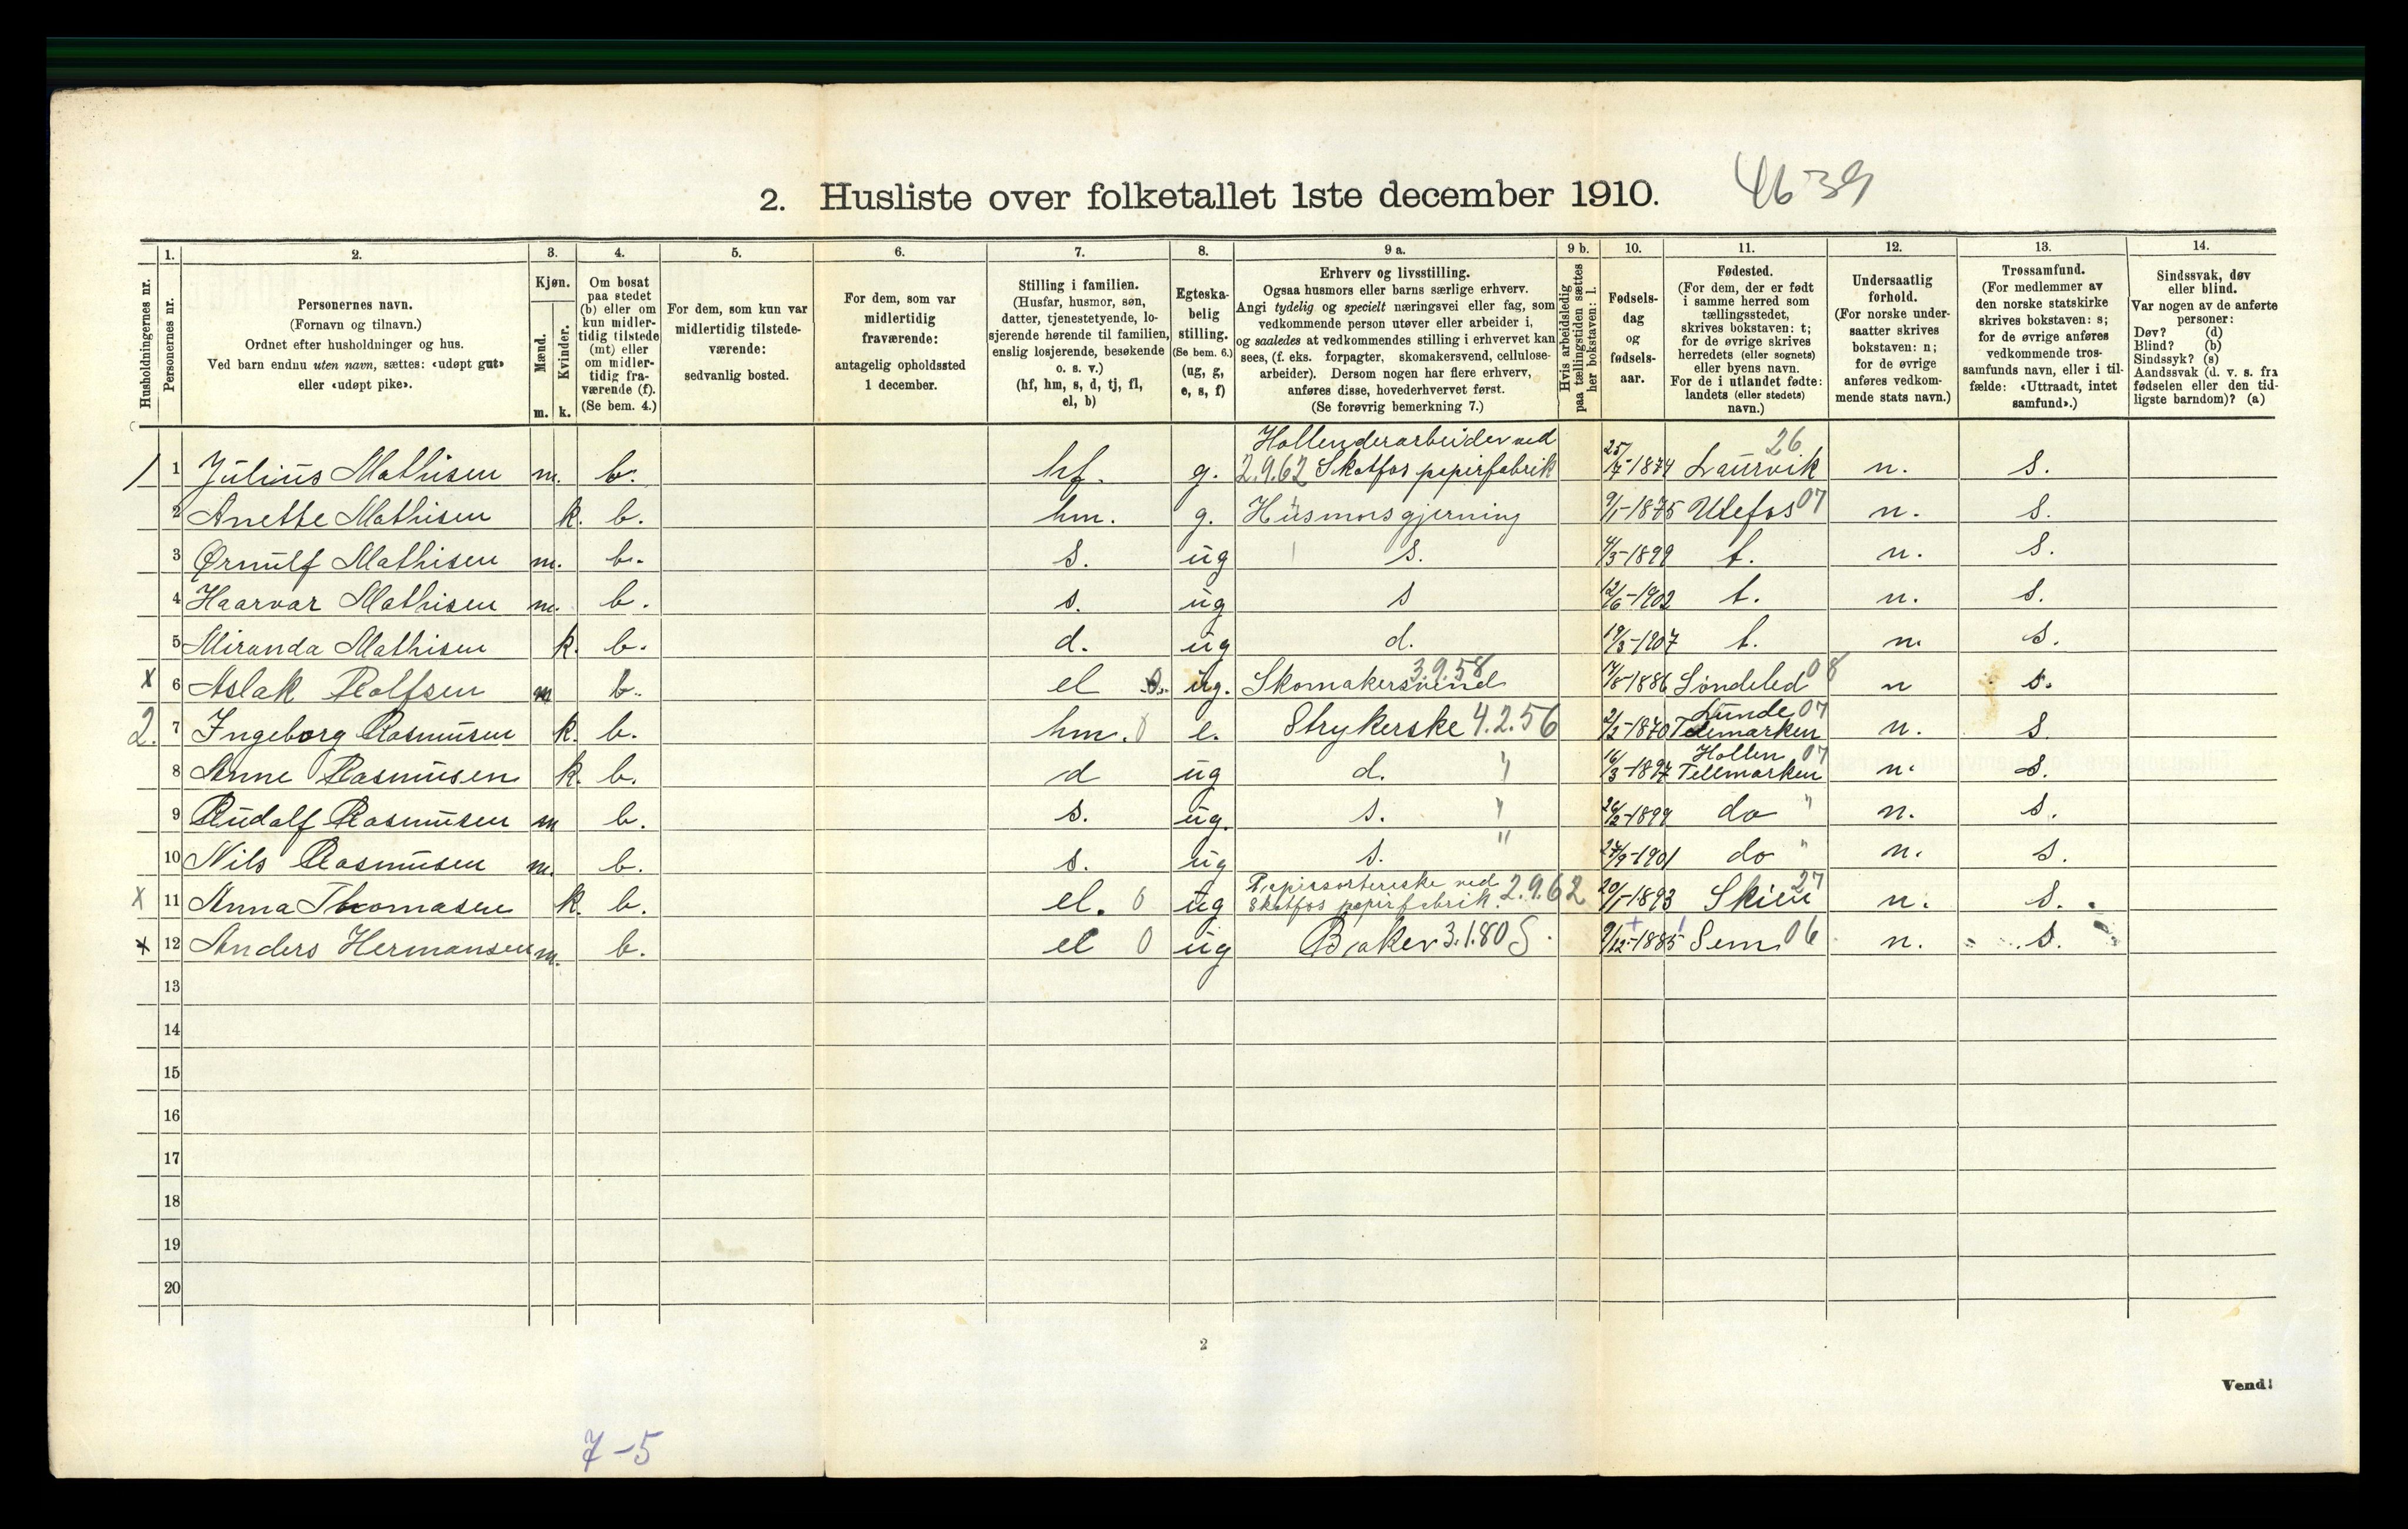 2. Husliste over folketallet 1ste december 1910. 4639
Husholdningernes nr.
1. Personernes nr.
2. Personernes navn. (Fornavn og tilnavn.) Ordnet efter husholdninger og hus. Ved barn endnu uten navn, sættes: «udøpt gut» eller «udøpt pike».
3. Kjøn. Mænd. m. Kvinder. k.
4. Om bosat paa stedet (b) eller om kun midlertidig tilstede (mt) eller om midlertidig fraværende (f). (Se bem. 4.)
5. For dem, som kun var midlertidig tilstedeværende: sedvanlig bosted.
6. For dem, som var midlertidig fraværende: antagelig opholdssted 1 december.
7. Stilling i familien. (Husfar, husmor, søn, datter, tjenestetyende, losjerende hørende til familien, enslig losjerende, besøkende o. s. v.) (hf, hm, s, d, tj, fl, el, b)
8. Egteskabelig stilling. (Se bem. 6.) (ug, g, e, s, f)
9 a. Erhverv og livsstilling. Ogsaa husmors eller barns særlige erhverv. Angi tydelig og specielt næringsvei eller fag, som vedkommende person utøver eller arbeider i, og saaledes at vedkommendes stilling i erhvervet kan sees, (f. eks. forpagter, skomakersvend, cellulosearbeider). Dersom nogen har flere erhverv, anføres disse, hovederhvervet først. (Se forøvrig bemerkning 7.)
9 b. Hvis arbeidsledig paa tællingstiden sættes her bokstaven: l.
10. Fødselsdag og fødselsaar.
11. Fødested. (For dem, der er født i samme herred som tællingsstedet, skrives bokstaven: t; for de øvrige skrives herredets (eller sognets) eller byens navn. For de i utlandet fødte: landets (eller stedets) navn.)
12. Undersaatlig forhold. (For norske undersaatter skrives bokstaven: n; for de øvrige anføres vedkommende stats navn.)
13. Trossamfund. (For medlemmer av den norske statskirke skrives bokstaven: s; for de øvrige anføres vedkommende trossamfunds navn, eller i tilfælde: «Uttraadt, intet samfund».)
14. Sindssvak, døv eller blind. Var nogen av de anførte personer: Døv? (d) Blind? (b) Sindssyk? (s) Aandssvak (d. v. s. fra fødselen eller den tidligste barndom)? (a)
1 1 Julius Mathisen m. b. hf. g. Hollenderarbeider ved 2.9.62 Skotfos papirfabrik 25/7-1874 Laurvik 26 n. s.
2 Anette Mathisen k. b. hm. g. Husmorsgjerning 9/1-1875 Ulefos 07 n. s.
3 Ørnulf Mathisen m. b. s. ug s. 4/3-1899 t. n. s.
4 Haarvar Mathisen m. b. s. ug s 12/6-1902 t. n. s.
5 Miranda Mathisen k. b. d. ug d. 19/3-1907 t. n. s.
x 6 Aslak Rolfsen m b. el ug. Skomakersvend 3.9.58 17/8-1886 Søndeled 08 n s.
2. 7 Ingeborg Rasmusen k. b. hm. 0 e. Strykerske 4.2.56 2/2-1870 Lunde 07 Telemarken n. s.
8 Anne Rasmusen k. b. d ug d. " 16/3-1897 Hollen 07 Tellmarken n. s.
9 Rudolf Rasmusen m b. s. ug. s. " 26/2-1899 do " n. s.
10 Nils Rasmusen m. b. s. ug s. " 27/9-1901 do " n. s.
x 11 Anna Thomasen k. b. el. 0 ug Papirsorterske ved Skotfos papirfabrik. 2.9.62 20/1-1893 Skien 27 n. s.
x 12 Anders Hermansen m. b. el 0 ug Baker 3.1.80 S. 9/12-1885 Sem 06 n. s.
13
14
15
16
17
18
19
20
2
Vend!
7-5